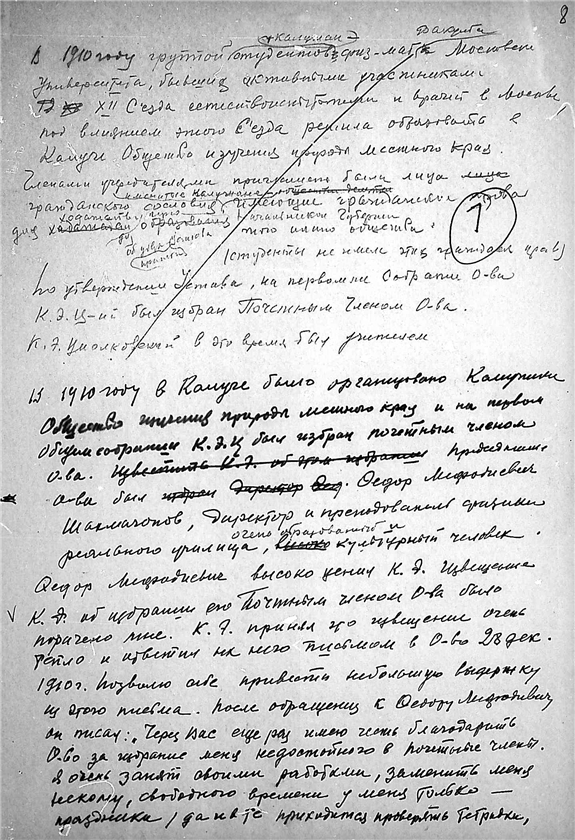 8
калужан факульт
В 1910 году группой студентов физ-мат Московск
Университета, бывших активными участниками
XII Съезда естествоиспытателей и врачей в Москве
под влиянием этого Съезда решила образовать в
Калуге Общество изучения природы местного края.
Членами учредителями приглашены были лица лица
именитые Калужане общества
гражданского сословия, имеющие гражданские права
ходатайств перед Начальником Губернии
для образования этого общества
об утв. Устава
(студенты не имели этих граждан. прав)
1
По утверждении Устава, на первом Собрании О-ва
К.Э.Ц-ий был избран Почетным Членом О-ва.
К.Э. Циолковский в это время был учителем
В 1910 году в Калуге было организовано Калужское
Общество изучения природы местного края и на первом
Общем собрании К.Э.Ц был избран почетным членом
О-ва. Известить К.Э. об этом избрании Председателем
О-ва был избран Директор Федор Мефодиевич
Шахмагонов, Директор и преподаватель физики
очень образованный и
реального училища, высоко культурный человек.
Федор Мефодиевич высоко ценил К.Э. Извещение
V К.Э. об избрании его Почетным членом О-ва было
поручено мне. К.Э. принял это извещение очень
тепло и ответил на него письмом в О-во 28 дек.
1910 г. Позволю себе привести небольшую выдержку
из этого письма. После обращения к Федору Мефодиевичу
он писал: „Через Вас еще раз имею честь благодарить
О-во за избрание меня недостойного в почетные члены.
Я очень занят своими работами, заменить меня
некому, свободного времени у меня только —
праздники / да и в те приходится проверять тетрадки,